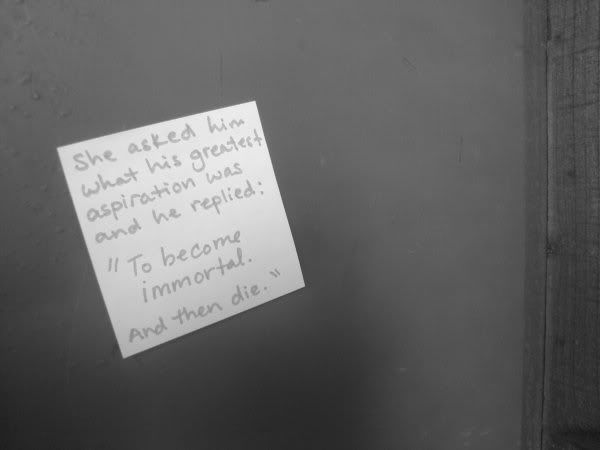 She asked him
what his greatest
aspiration was
and he replied:
"To become
immortal.
And then die."